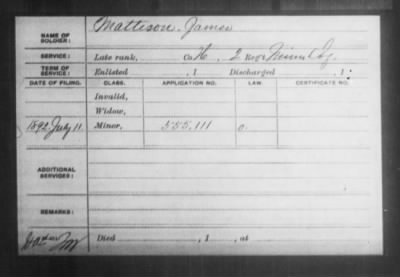 NAME OF SOLDIER: Mattison, James
SERVICE: Late rank, Co. H, 2 Reg't Minn
TERM OF SERVICE: Enlisted , 1 Discharged , 1
DATE OF FILING. CLASS. APPLICATION NO. LAW. CERTIFICATE NO.
Invalid,
Widow,
1892, July 11 Minor, 555,111
ADDITIONAL SERVICES:
REMARKS:
Died , 1 , at